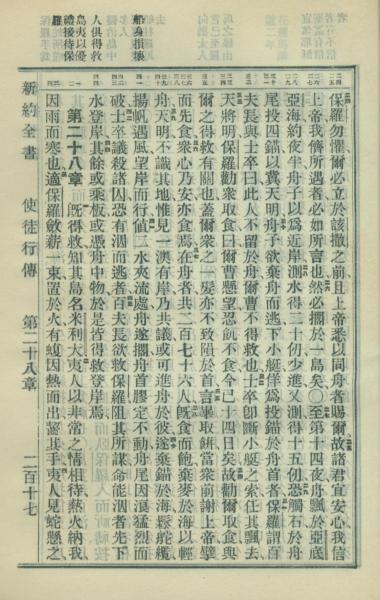 保羅勿懼爾必立於該撒之前且上帝悉以同舟者賜爾故諸君宜安心我信
上帝我儕所遇者必如所言也然必擱於一島矣〇至第十四夜舟飄於亞底
亞海約夜半舟子以爲近岸測水得二十仞少進又測得十五仞恐觸石於舟
尾投四錨以冀天明舟子欲棄舟而逃下小艇佯爲投錨於舟首者保羅謂百
夫長與士卒曰此人不留於舟爾曹不得救也士卒卽斷小艇之索任其飄去
天將明保羅勸衆取食曰爾曹懸望忍飢不食今已十四日矣故勸爾取食與
爾之得救有關也蓋爾衆之一髮亦不致隕於首言畢取餅當衆前謝上帝擘
而先食衆心乃安亦食焉在舟者共二百七十六人旣食而飽棄麥於海以輕
舟天明不識其地惟見一澳有岸乃共議或可進舟於彼遂棄錨於海鬆舵纜
揚帆遇風望岸而行値二水夾流處舟遂擱舟首膠定不動舟尾因浪猛烈而
破士卒議殺諸囚恐有泅而逃者百夫長欲救保羅阻其所謀命能泅者先下
水登岸其餘或乘板或憑舟中物於是皆得救登岸焉
第二十八章 旣得救知其島名米利大夷人以非常之情相待爇火納我
因雨而寒也適保羅斂薪一束置於火有蝮因熱而出齧其手夷人見蛇懸之
船身損壞
人俱得救
島夷以優
禮接待保
羅
新約全書 使徒行傳 第二十八章 二百十七